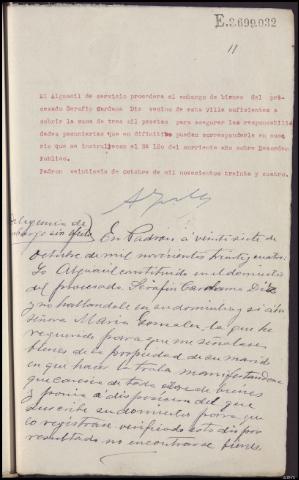 E.3699,032
11
El Alguacil de servicio procederá al embargo de bienes del pro-
cesado Serafín Cardama Diz vecino de esta villa suficientes a
cubrir la suma de tres mil pesetas para asegurar las responsabili-
dades pecuniarias que en difinitiva puedan corresponderle en suma-
rio que se instruye con el Nº 120 del corriente año sobre Desorden
Publico.
Padron veintiseis de octubre de mil novecientos treinta y cuatro.
Diligencia de
embargo sin efecto
En Padron á veinte siete de
Octubre de mil novecientos treinta y cuatro:
Yo Alguacil constituido en el domicilio
del procesado Serafín Cardama Diz
y no hallandole en su domicilio y si a su
Señora María Gonzalez, la que he
requirido para que me señalase
bienes de la propiedad de su marido
en que hacer la traba manifestandome
que carecia de toda clase de bienes
y ponia á disposicion del que
suscribe su domicilio para que
lo registrase verificado esto dió por
resultado no encontrarse bienes